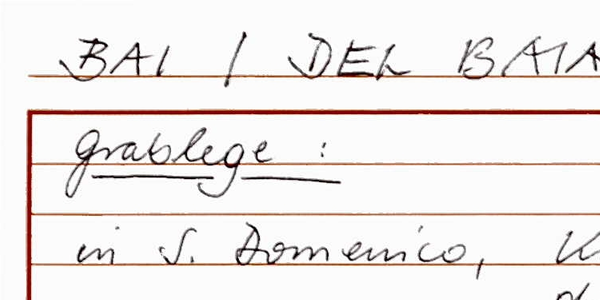 BAI / DEL BAIA
Grablege :
in S. Domenico,